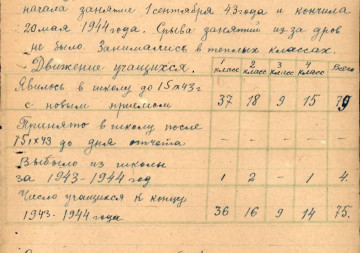 начала занятие 1 сентября 43 года и кончила
20 мая 1944 года. Срыва занятий из за дров
не было. Занимались в теплых классах.
Движение учащихся. 1 класс 2 класс 3 класс 4 класс Всего
Явилось в школу до 15/IX 43 г
с новым приемом 37 18 9 15 79
Принято в школу после
15 IX 43 до дня отчета - - - - -
Выбыло из школы
за 1943-1944 год 1 2 - 1 4.
Число учащихся к концу
1943-1944 года 36 16 9 14 75.